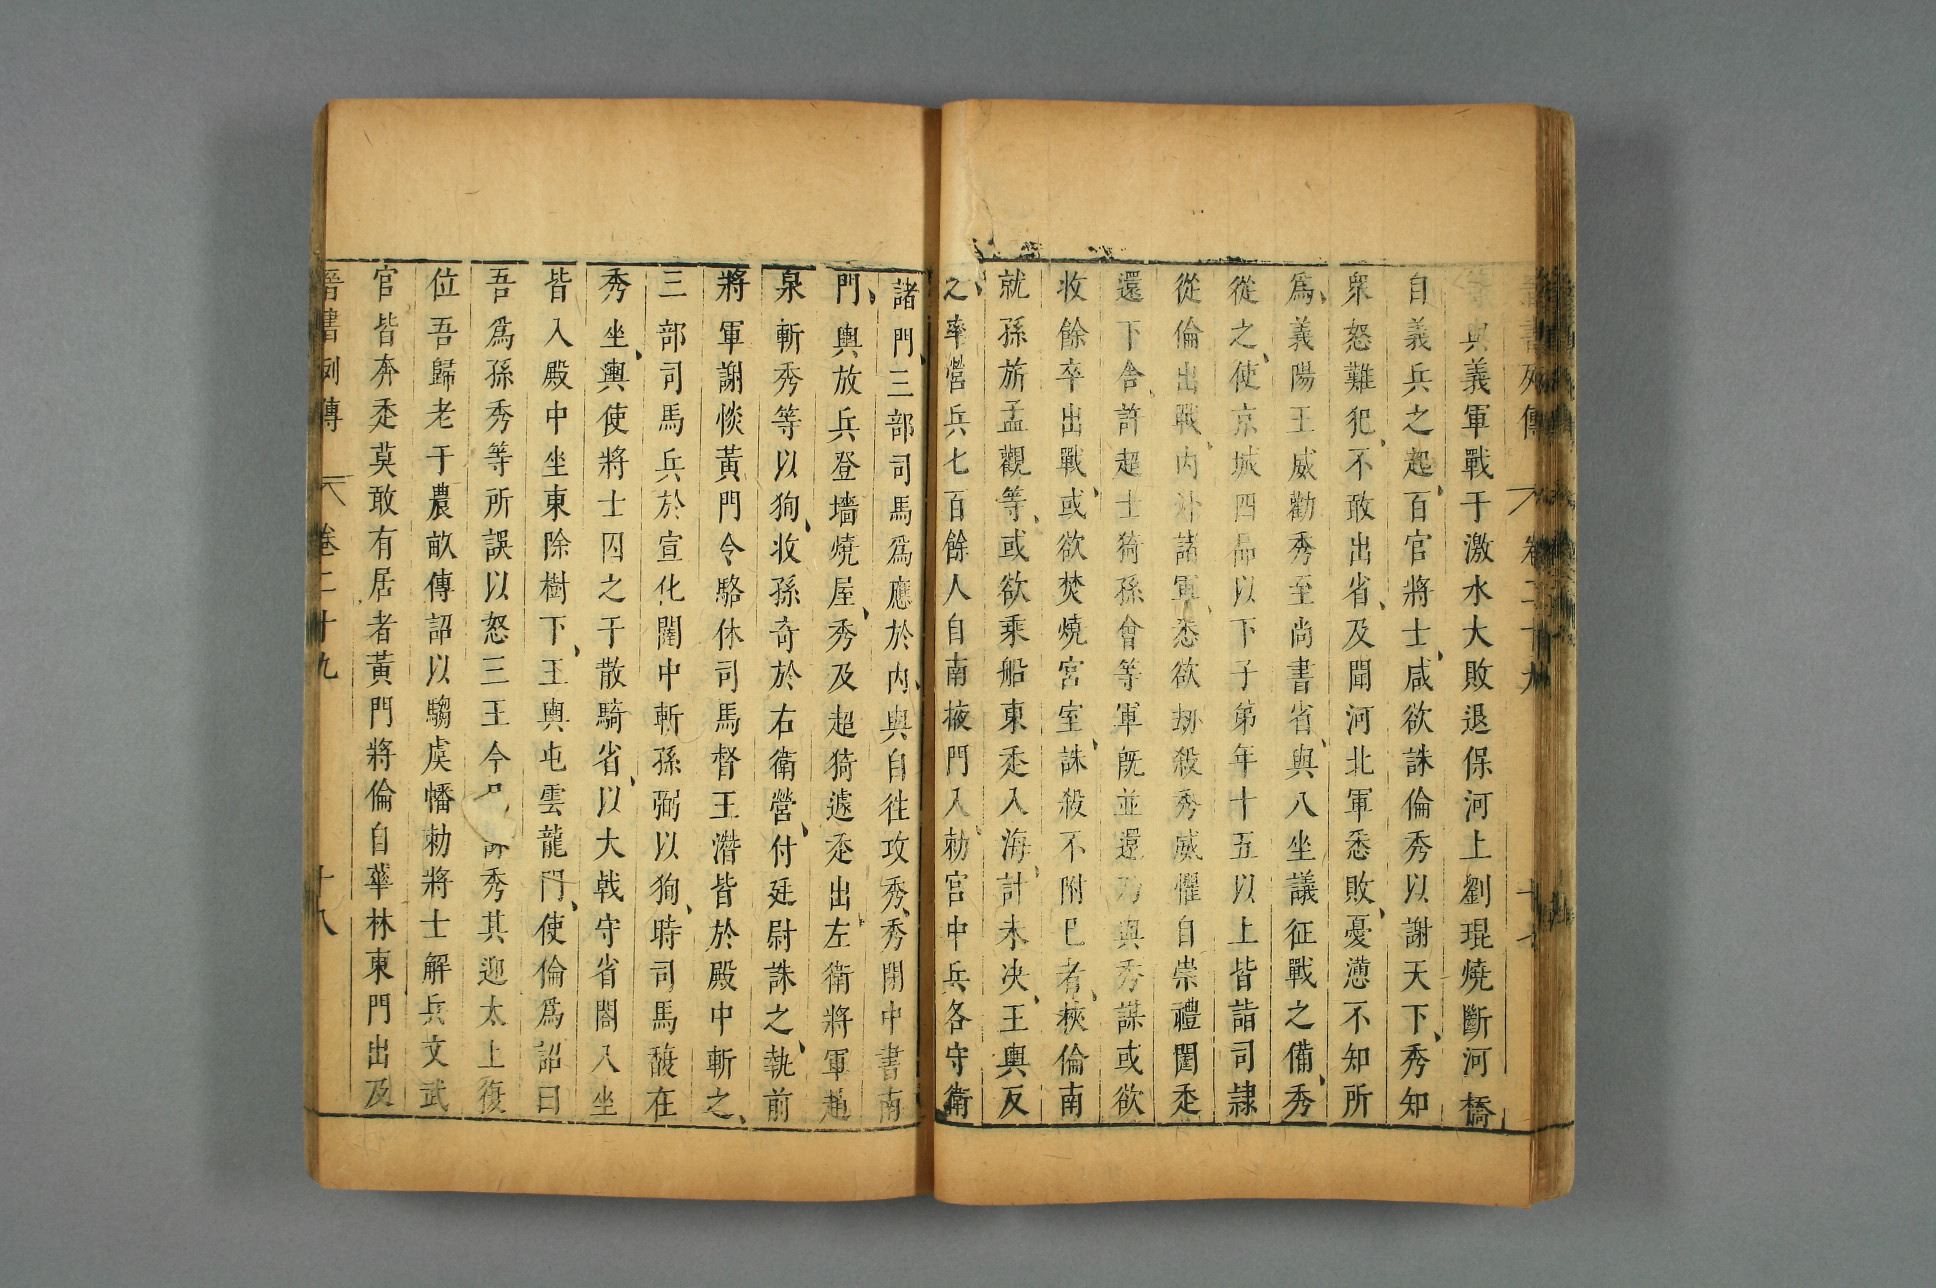 晉書列傳 卷二十九 十七
等與義軍戰于激水大敗退保河上劉琨燒斷河橋
自義兵之起百官將士咸欲誅倫秀以謝天下秀知
衆怒難犯不敢出省及聞河北軍悉敗憂懣不知所
爲義陽王威勸秀至尚書省與八坐議征戰之備秀
從之使京城四品以下子弟年十五以上皆詣司隸
從倫出戰内外諸軍悉欲劫殺秀威懼自崇禮闥走
還下舍許超士猗孫會等軍旣並還乃與秀謀或欲
收餘卒出戰或欲焚燒宮室誅殺不附已者挾倫南
就孫旂孟觀等或欲乘船東走入海計未決王輿反
之率營兵七百餘人自南掖門入勅宮中兵各守衛
諸門三部司馬爲應於内輿自往攻秀秀閉中書南
門輿放兵登墻燒屋秀及超猗遽走出左衛將軍趙
泉斬秀等以狥收孫奇於右衛營付廷尉誅之執前
將軍謝惔黃門令駱休司馬督王潛皆於殿中斬之
三部司馬兵於宣化闥中斬孫弼以狥時司馬馥在
秀坐輿使將士囚之于散騎省以大戟守省閤入坐
皆入殿中坐東除樹下王輿屯雲龍門使倫爲詔曰
吾爲孫秀等所誤以怒三王今已誅秀其迎太上復
位吾歸老于農畝傳詔以騶虞幡勅將士解兵文武
官皆奔走莫敢有居者黃門將倫自華林東門出及
晉書列傳 卷二十九 十八